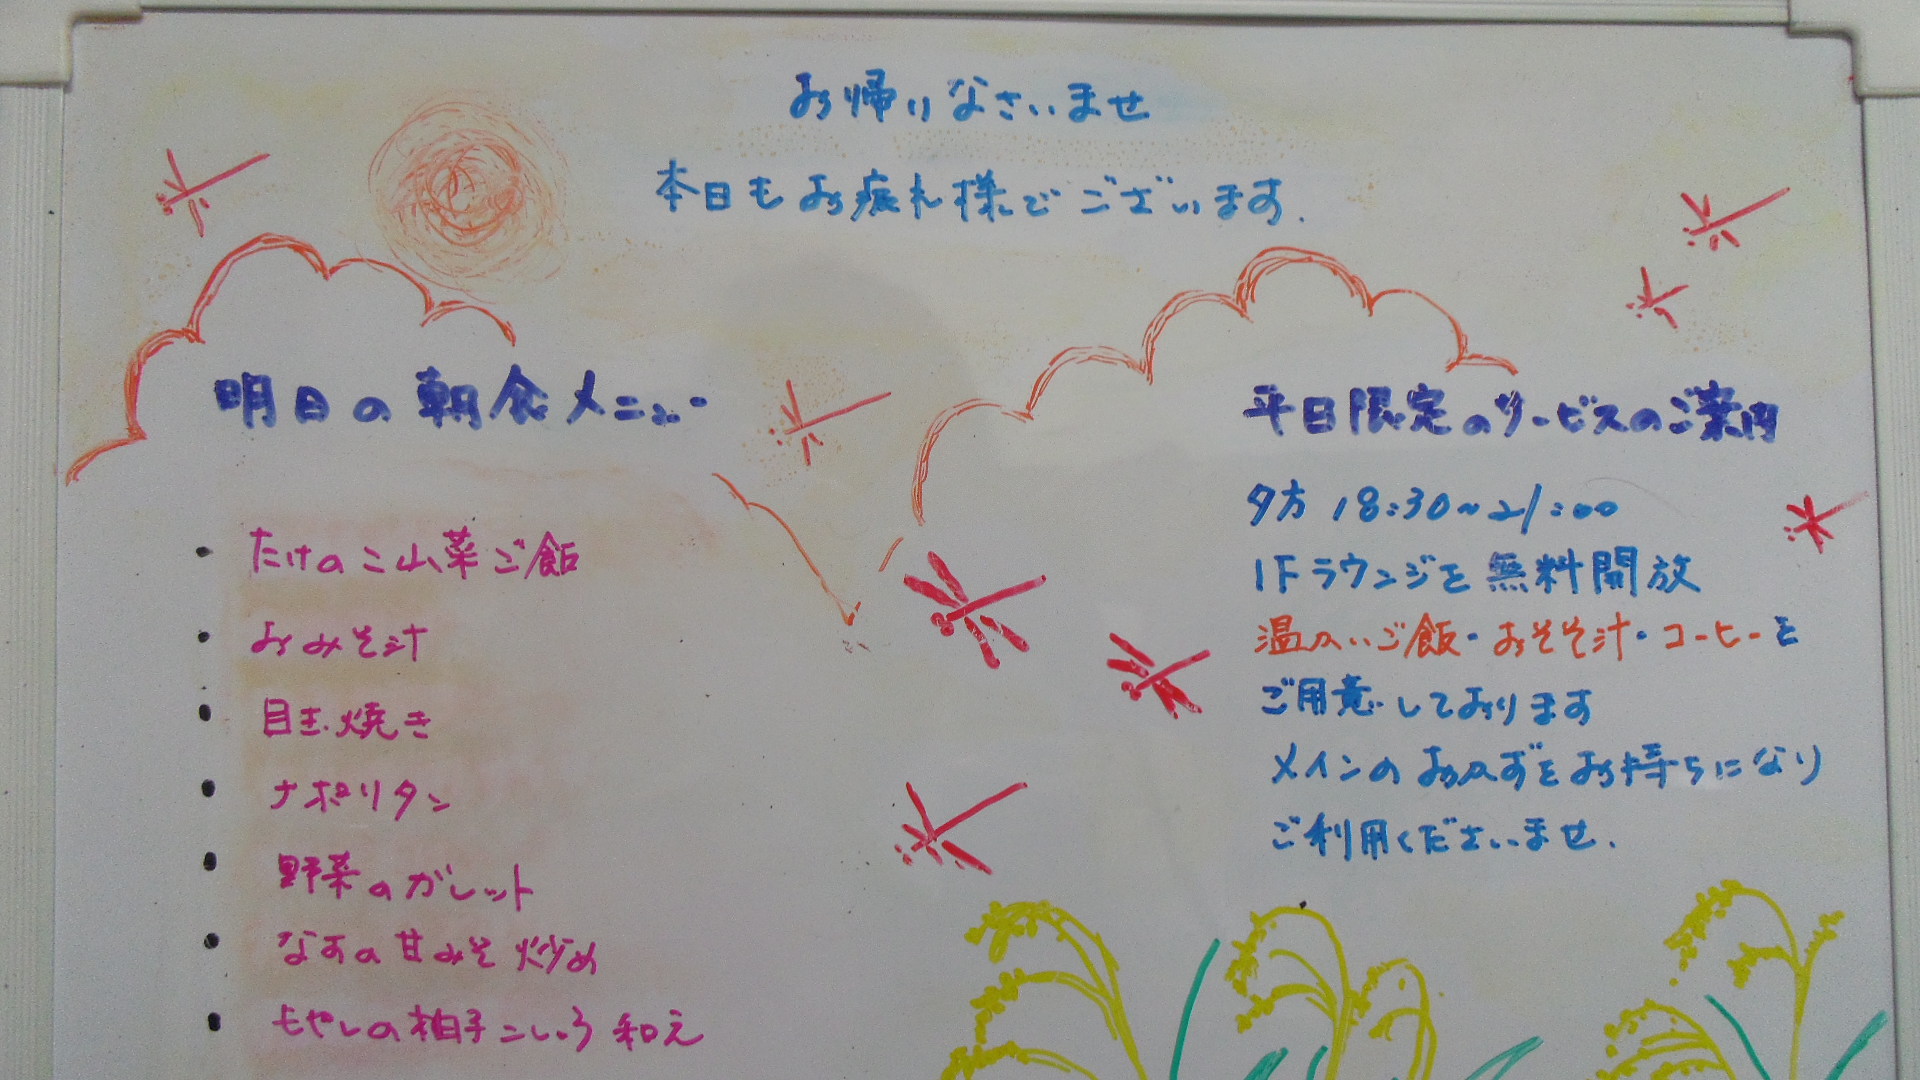 お帰りなさいませ
本日もお疲れ様でございます.
明日の朝食メニュー
・たけのこ山菜ご飯
・おみそ汁
・目玉焼き
・ナポリタン
・野菜のガレット
・なすの甘みそ炒め
・もやしの柚子こしょう和え
平日限定のサービスのご案内
夕方 18:30~21:00
1Fラウンジを無料開放
温かいご飯・おそそ汁・コーヒーを
ご用意しております
メインのおかずをお持ちになり
ご利用くださいませ.